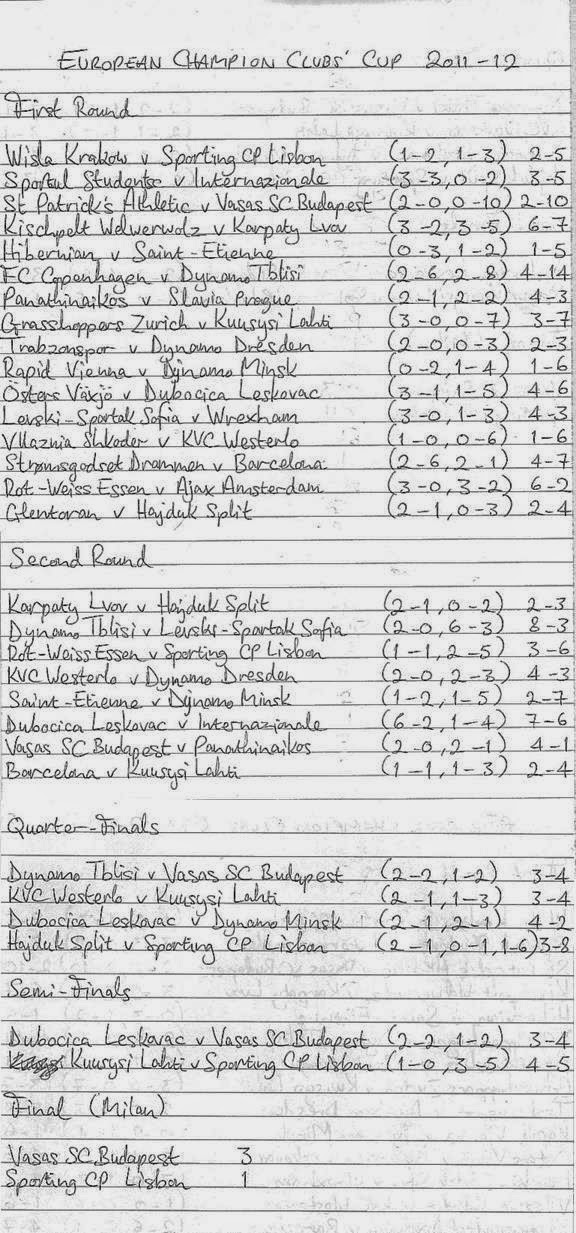 EUROPEAN CHAMPION CLUBS' CUP 2011-12
First Round
Wisla Krakow v Sporting CP Lisbon (1-2, 1-3) 2-5
Sportul Studentsc v Internazionale (3-3, 0-2) 3-5
St Patrick's Athletic v Vasas SC Budapest (2-0, 0-10) 2-10
Kischpelt Welwerwolz v Karpaty Lvov (3-2, 3-5) 6-7
Hibernian v Saint-Etienne (0-3, 1-2) 1-5
FC Copenhagen v Dynamo Tblisi (2-6, 2-8) 4-14
Panathinaikos v Slavia Prague (2-1, 2-2) 4-3
Grasshoppers Zurich v Kuusysi Lahti (3-0, 0-7) 3-7
Trabzonspor v Dynamo Dresden (2-0, 0-3) 2-3
Rapid Vienna v Dynamo Minsk (0-2, 1-4) 1-6
Östers Växjö v Dubocica Leskovac (3-1, 1-5) 4-6
Levski-Spartak Sofia v Wrexham (3-0, 1-3) 4-3
Vllaznia Shkoder v KVC Westerlo (1-0, 0-6) 1-6
Strømsgodset Drammen v Barcelona (2-6, 2-1) 4-7
Rot-Weiss Essen v Ajax Amsterdam (3-0, 3-2) 6-2
Glentoran v Hajduk Split (2-1, 0-3) 2-4
Second Round
Karpaty Lvov v Hajduk Split (2-1, 0-2) 2-3
Dynamo Tblisi v Levski-Spartak Sofia (2-0, 6-3) 8-3
Rot-Weiss Essen v Sporting CP Lisbon (1-1, 2-5) 3-6
KVC Westerlo v Dynamo Dresden (2-0, 2-3) 4-3
Saint-Etienne v Dynamo Minsk (1-2, 1-5) 2-7
Dubocica Leskovac v Internazionale (6-2, 1-4) 7-6
Vasas SC Budapest v Panathinaikos (2-0, 2-1) 4-1
Barcelona v Kuusysi Lahti (1-1, 1-3) 2-4
Quarter-Finals
Dynamo Tblisi v Vasas SC Budapest (2-2, 1-2) 3-4
KVC Westerlo v Kuusysi Lahti (2-1, 1-3) 3-4
Dubocica Leskovac v Dynamo Minsk (2-1, 2-1) 4-2
Hajduk Split v Sporting CP Lisbon (2-1, 0-1, 1-6) 3-8
Semi-Finals
Dubocica Leskovac v Vasas SC Budapest (2-2, 1-2) 3-4
Kuusysi Lahti v Sporting CP Lisbon (1-0, 3-5) 4-5
Final (Milan)
Vasas SC Budapest 3
Sporting CP Lisbon 1